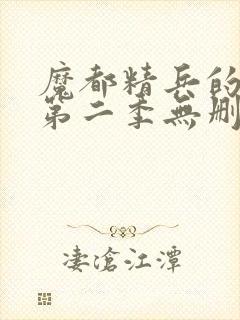 魔都精兵的
第二季無刪
淒滄江潭